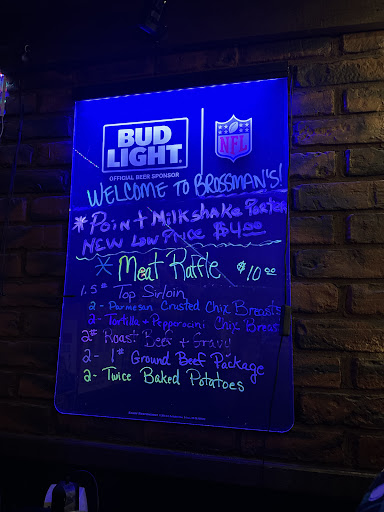 BUD
LIGHT
NFL
OFFICIAL BEER SPONSOR
WELCOME TO BROSSMAN'S!
*Point Milkshake Porter
NEW Low Price $4.00
* Meat Raffle $10.00
1.5# Top Sirloin
2- Parmesan Crusted Chix Breasts
2- Tortilla + Pepperocini Chix Breast
2# Roast Beef + Gravy
2- 1# Ground Beef Package
2- Twice Baked Potatoes